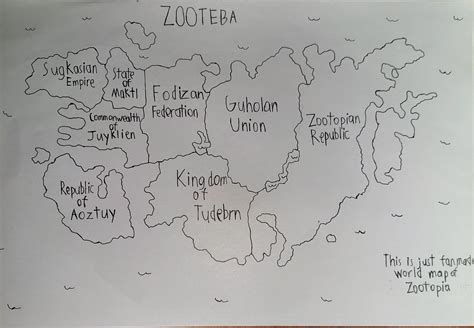 ZOOTEBA
SugKasian
Empire
State
of
Maktl
Fodizan
Federation
Guholan
Union
Zootopian
Republic
Commonwealth
of
Juyklien
Republic
of
Aoztuy
Kingdom
of
Tudebrn
This is just fanmade
world map of
Zootopia